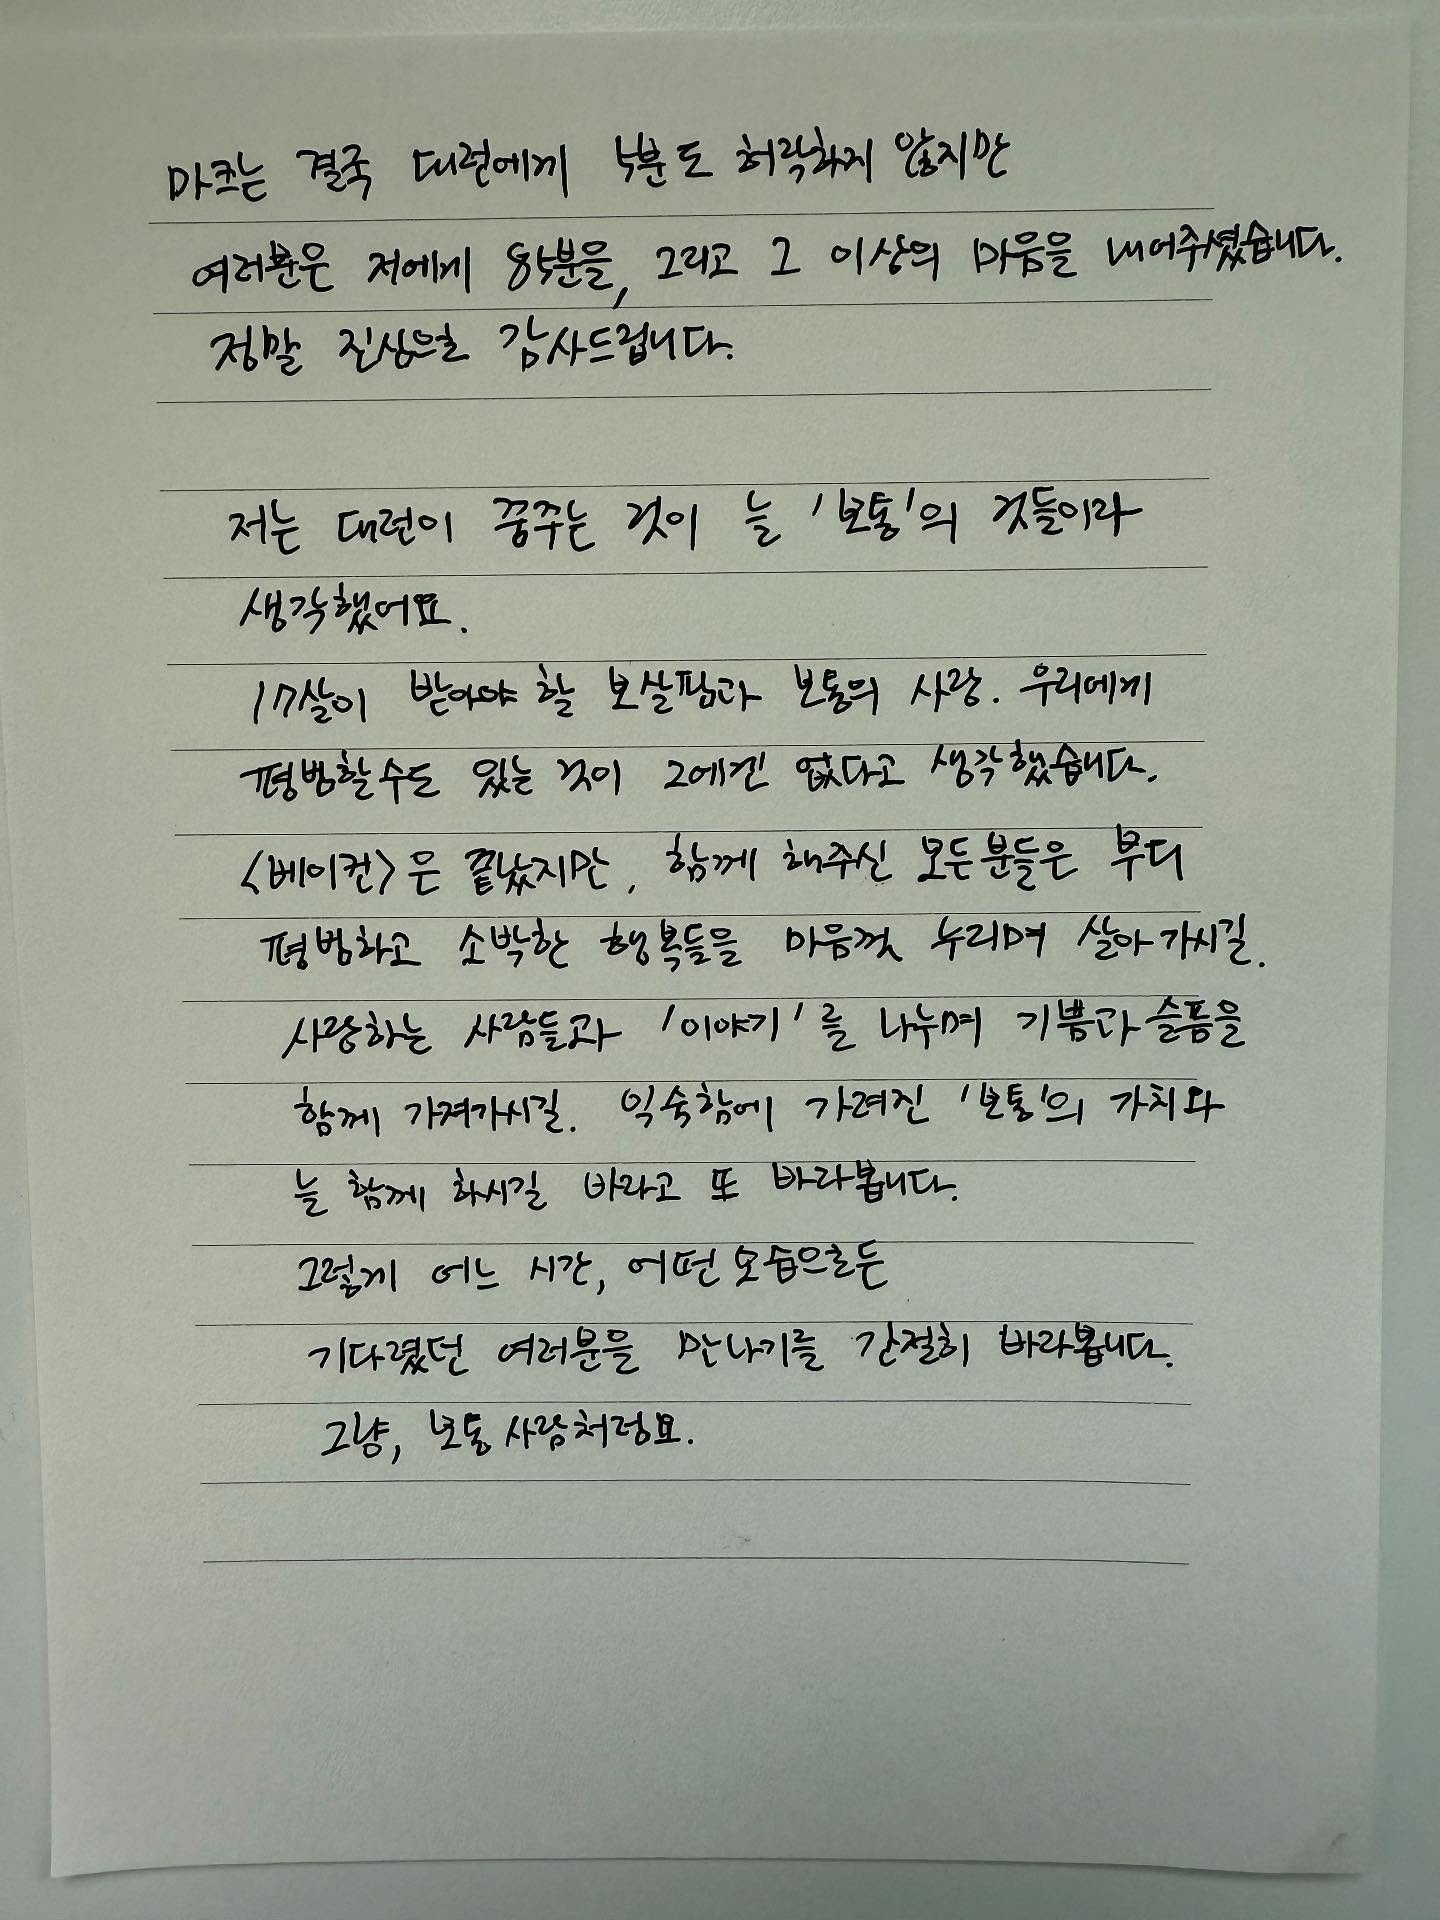 마크는 결국 대런에게 5분도 허락하지 않지만
여러분은 저에게 85분을, 그리고 그 이상의 마음을 내어주셨습니다.
정말 진심으로 감사드립니다.
저는 대런이 꿈꾸는 것이 늘 '보통'의 것들이라
생각했어요.
17살이 받아야 할 보살핌과 보통의 사랑. 우리에게
평범할수도 있는 것이 그에겐 없다고 생각했습니다.
<베이컨>은 끝났지만, 함께 해주신 모든분들은 부디
평범하고 소박한 행복들을 마음껏 누리며 살아가시길.
사랑하는 사람들과 '이야기'를 나누며 기쁨과 슬픔을
함께 가져가시길. 익숙함에 가려진 '보통'의 가치와
늘 함께 하시길 바라고 또 바라봅니다.
그렇게 어느 시간, 어떤 모습으로든
기다렸던 여러분을 만나기를 간절히 바라봅니다.
그냥, 보통 사람처럼요.